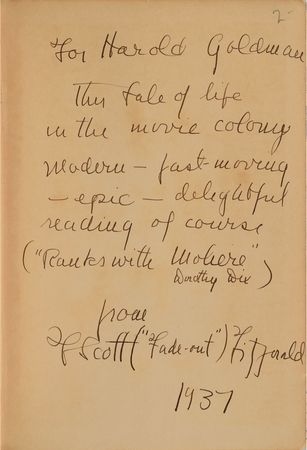 2-
For Harold Goldman
This tale of life
in the movie colony
modern — fast-moving
— epic — delightful
reading of course
("Ranks with Moliere"
Dorothy Dix)
from
F Scott ("Fade-out") Fitzgerald
1937